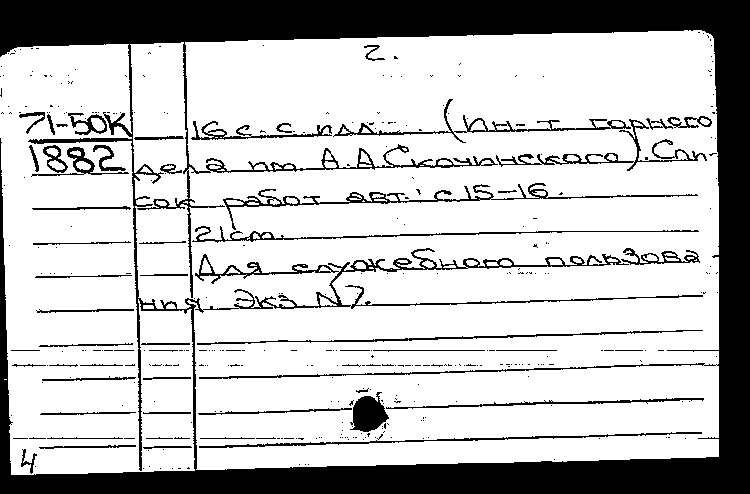 2.
71-50К 16 с. с илл. (Ин-т горного
1882 дела им. А.А.Скочинского). Спи-
сок работ авт.: с 15-16.
21см.
Для служебного пользова-
ния. Экз N7.
4